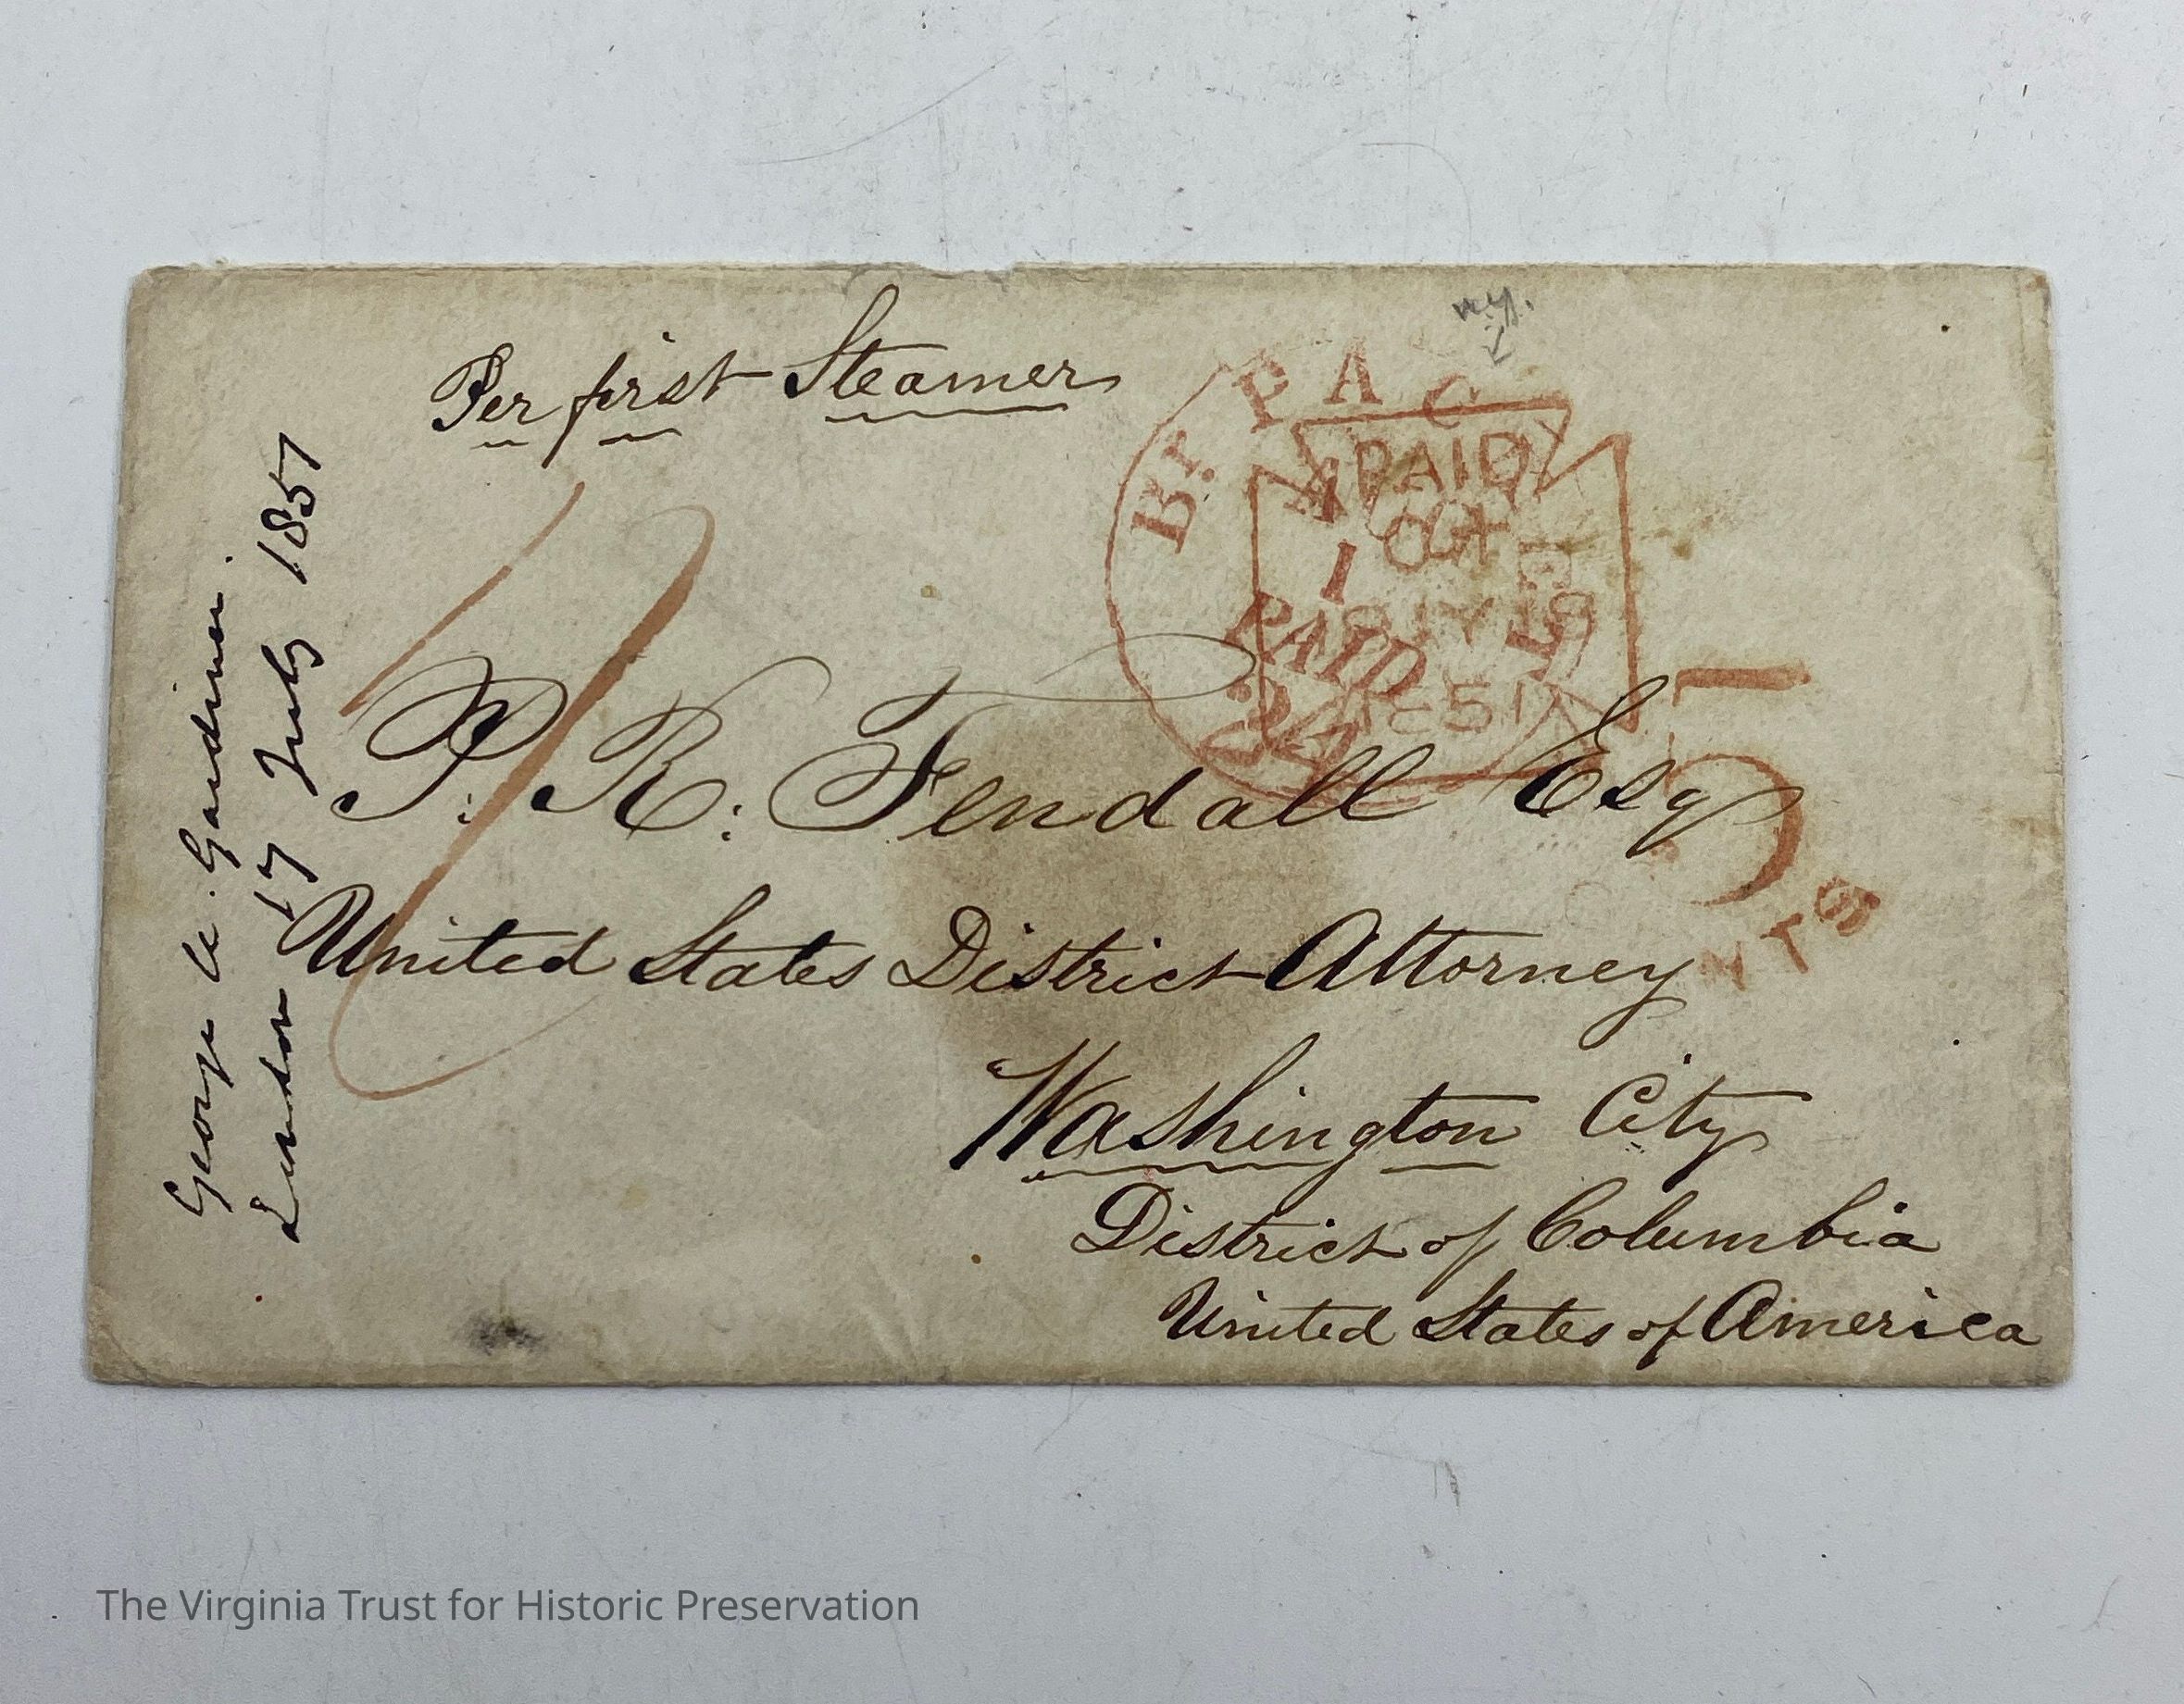 Per first Steamer
n.y.
George W. Gardiner.
London 17 July 1851
Br. PAC
PAID
1
PAID
JY 18
1851
24
P. R. Fendall Esq
United States District Attorney
Washington City
District of Columbia
United States of America
NTS
The Virginia Trust for Historic Preservation